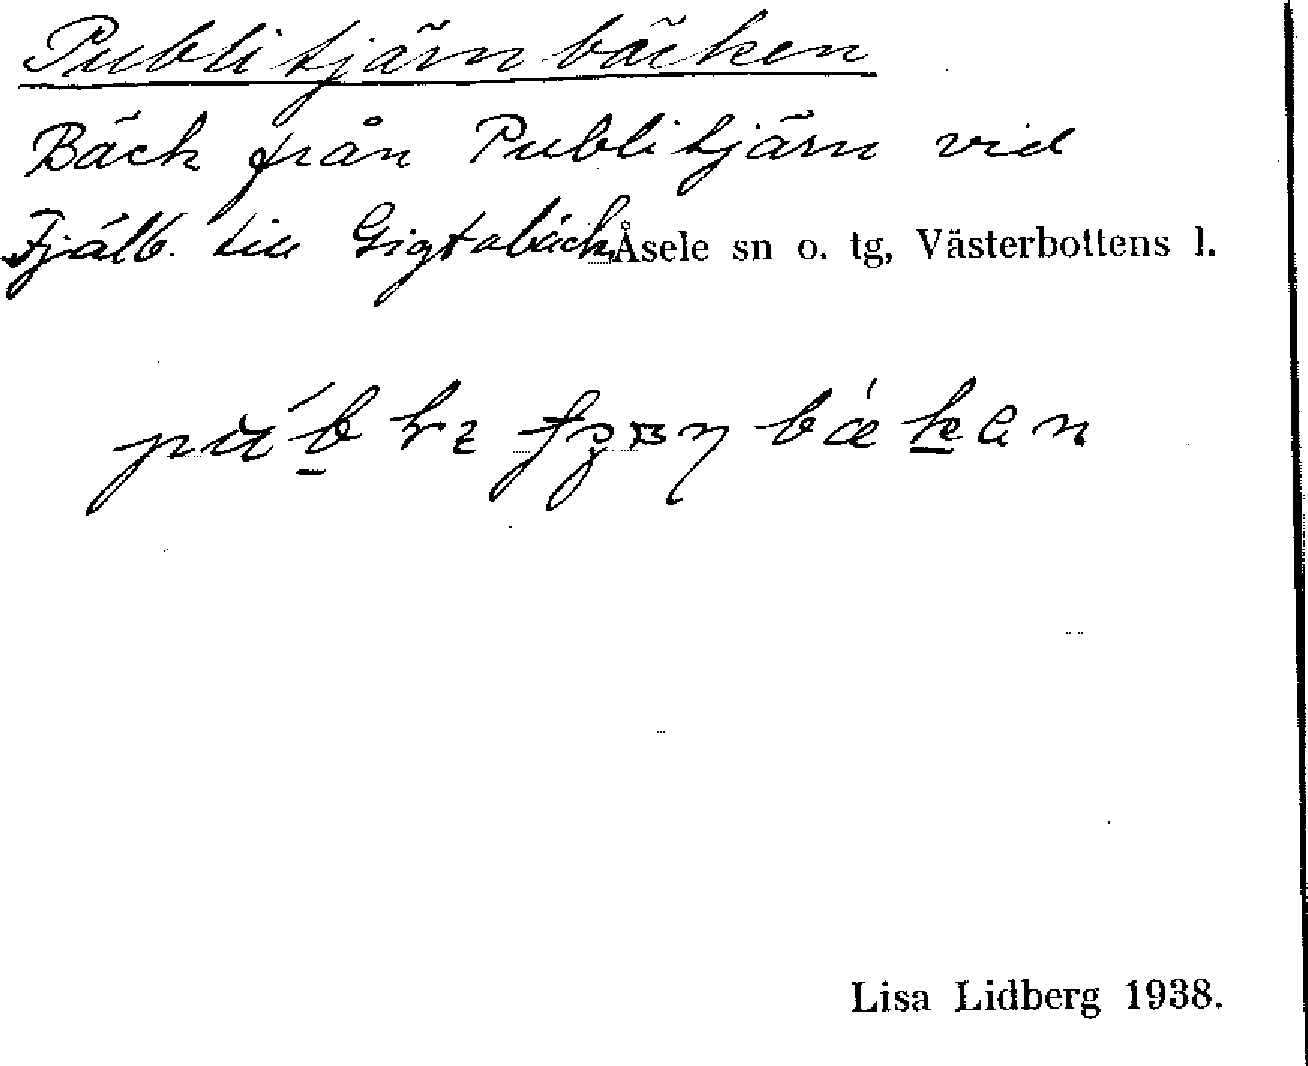 Publitjärnbäcken
Bäck från Publitjärn vid
Fjälb. till Gigtabäck Åsele sn o. tg, Västerbottens l.
Lisa Lidberg 1938.